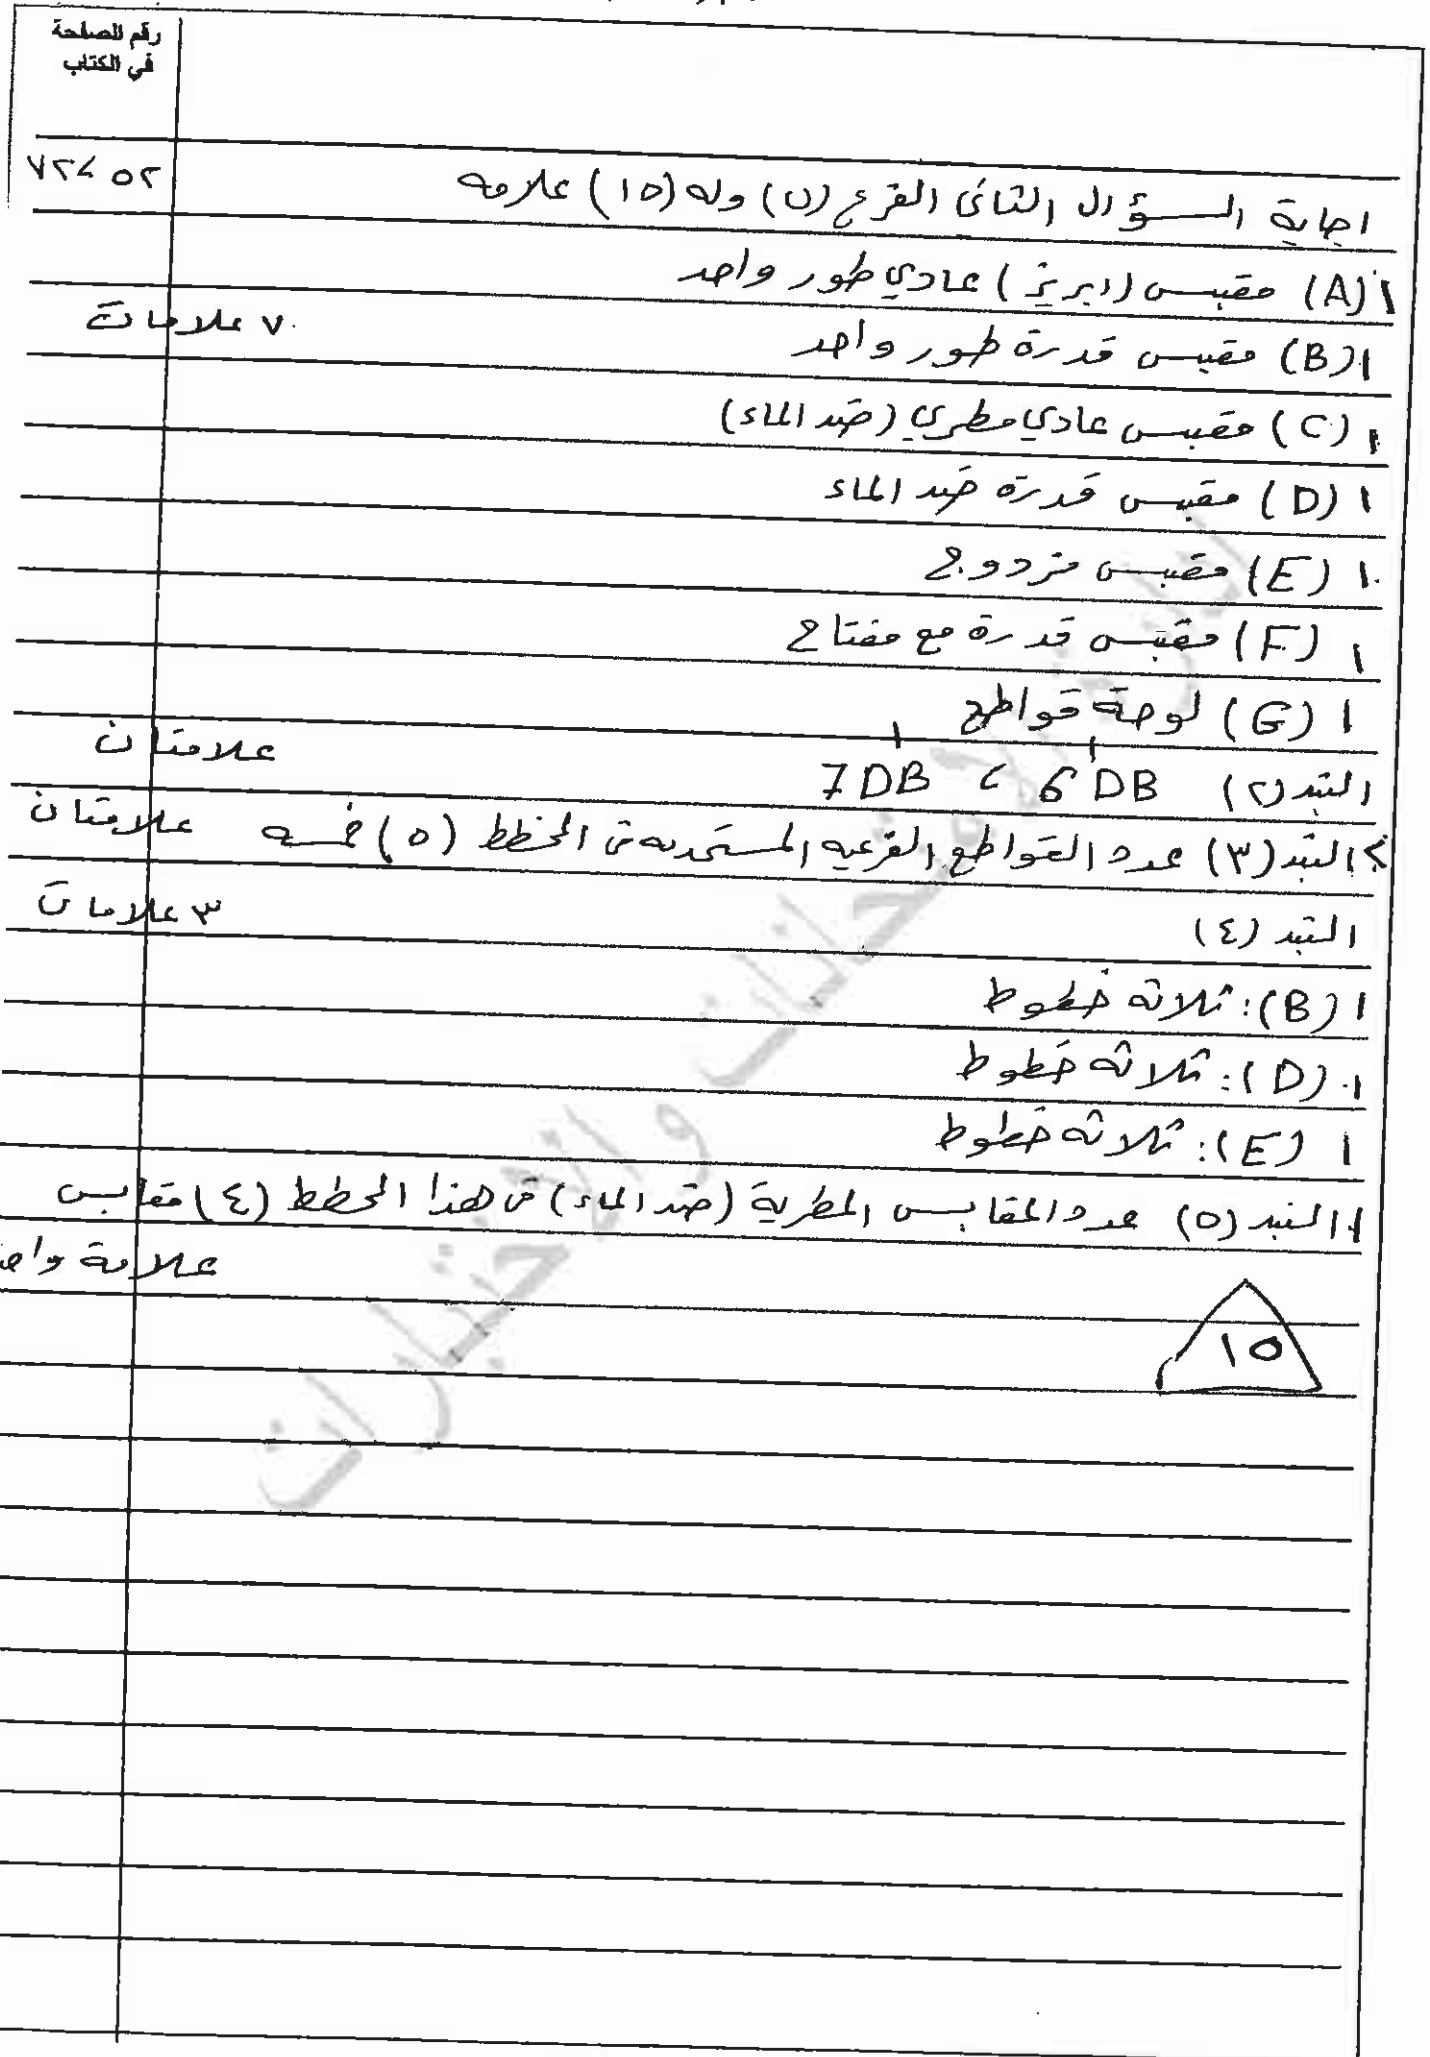 رقم الصفحة
في الكتاب
اجابة السؤال الثاني الفرع (ب) وله (١٥) علامه
٥٢ ، ٧٢
١ (A) مقبس (ابريز) عادي طور واحد
١ (B) مقبس قدرة طور واحد
٧ علامات
١ (C) مقبس عادي مطري (ضد الماء)
١ (D) مقبس قدرة ضد الماء
١ (E) مقبس مزدوج
١ (F) مقبس قدرة مع مفتاح
١ (G) لوحة قواطع
البند (٢) 6DB ، 7DB علامتان
١ ١
٢ البند (٣) عدد القواطع الفرعيه المستخدمه في المخطط (٥) خمسه علامتان
البند (٤) ٣ علامات
١ (B): ثلاثه خطوط
١ (D): ثلاثه خطوط
١ (E): ثلاثه خطوط
١ البند (٥) عدد المقابس المطرية (ضد الماء) في هذا المخطط (٤) مقابس
علامة
١٥
والاختبارات